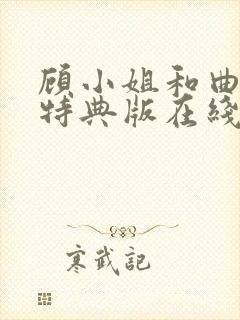 顾小姐和曲
特典版在綫
寒武記